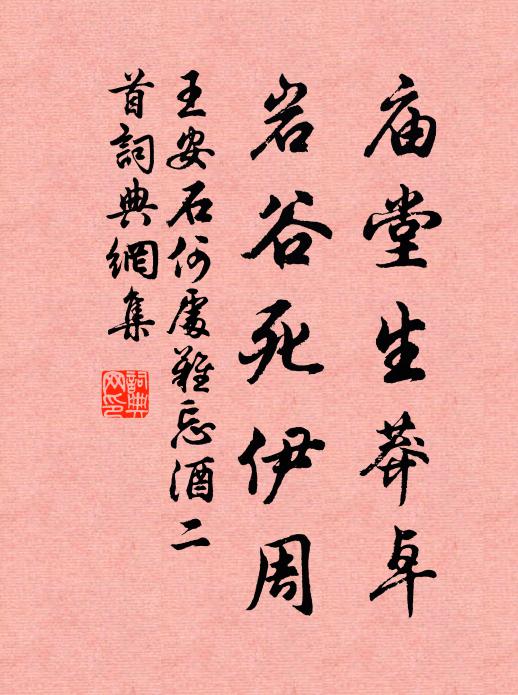 庙堂生莽卓
岩谷死伊周
王安石何處難忘酒二
首詞典網集
詞典网印